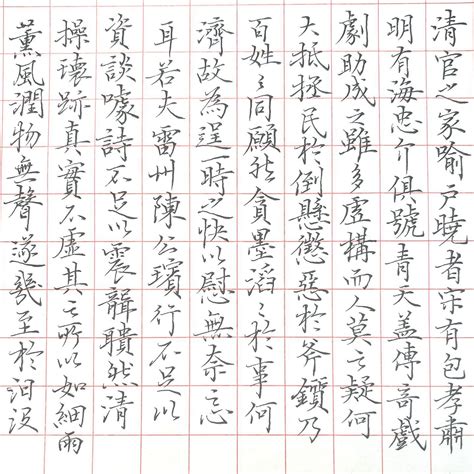 清官之家喻戶曉者宋有包孝肅
明有海忠介俱號青天蓋傳奇戲
劇助成之雖多虛構而人莫之疑何
大抵拯民於倒懸懲惡於斧鑕乃
百姓之同願然貪墨滔〻於事何
濟故為逞一時之快以慰無奈
耳若夫雷州陳公璸行不足以
資談噱詩不足以震聾聵然清
操瓌跡真實不虛其之所以如細雨
薰風潤物無聲遂幾至於汩沒